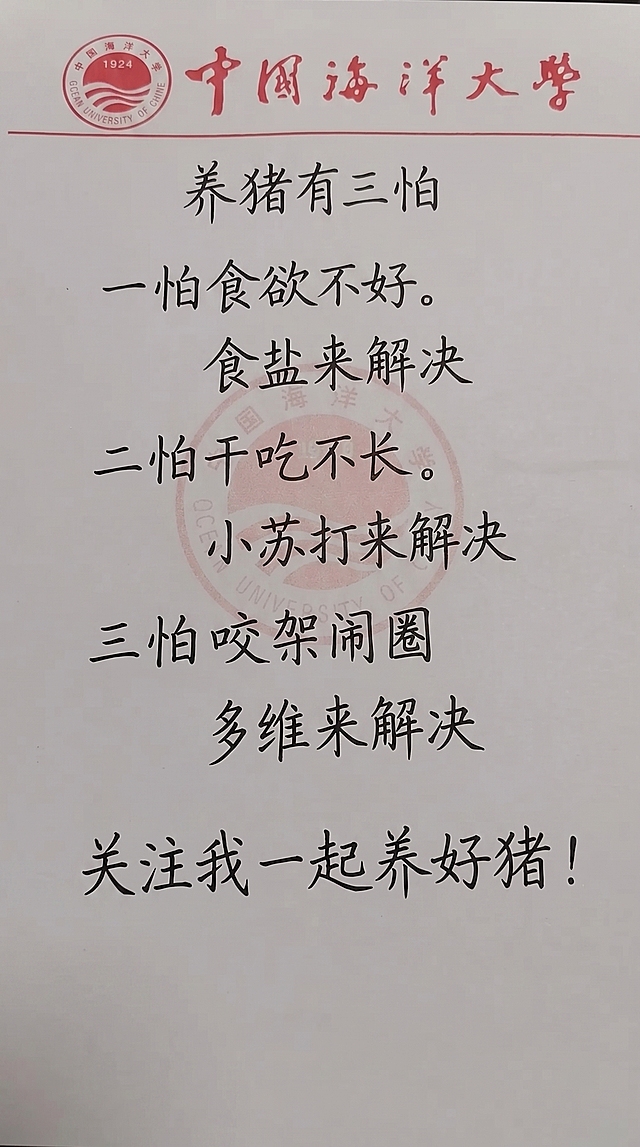 中国海洋大学
1924
OCEAN UNIVERSITY OF CHINE
中国海洋大學
养猪有三怕
一怕食欲不好。
食盐来解决
二怕干吃不长。
小苏打来解决
三怕咬架闹圈
多维来解决
关注我一起养好猪！
中国海洋大学
OCEAN UNIVERSITY OF